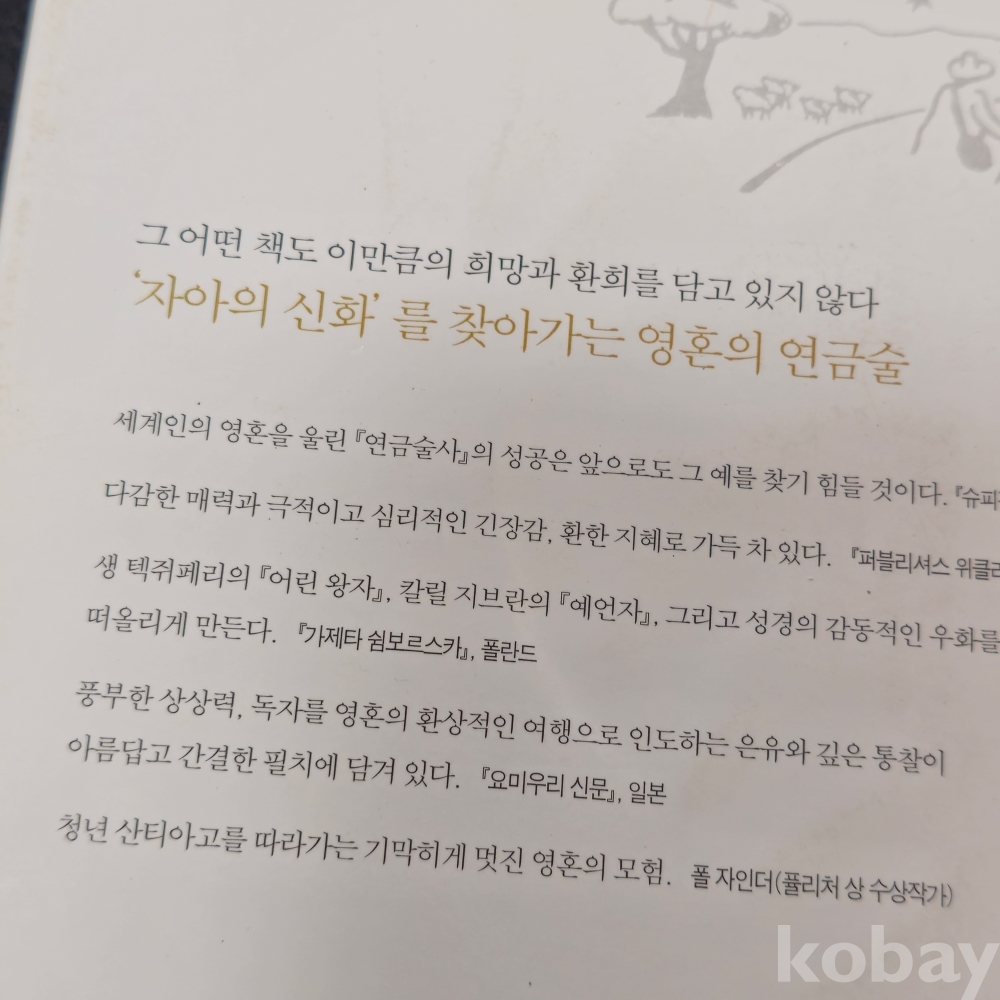 그 어떤 책도 이만큼의 희망과 환희를 담고 있지 않다
‘자아의 신화’를 찾아가는 영혼의 연금술
세계인의 영혼을 울린 『연금술사』의 성공은 앞으로도 그 예를 찾기 힘들 것이다. 『슈피
다감한 매력과 극적이고 심리적인 긴장감, 환한 지혜로 가득 차 있다. 『퍼블리셔스 위클리
생 텍쥐페리의 『어린 왕자』, 칼릴 지브란의 『예언자』, 그리고 성경의 감동적인 우화를
떠올리게 만든다. 『가제타 쉼보르스카』, 폴란드
풍부한 상상력, 독자를 영혼의 환상적인 여행으로 인도하는 은유와 깊은 통찰이
아름답고 간결한 필치에 담겨 있다. 『요미우리 신문』, 일본
청년 산티아고를 따라가는 기막히게 멋진 영혼의 모험. 폴 자인더(퓰리처 상 수상작가)
kobay